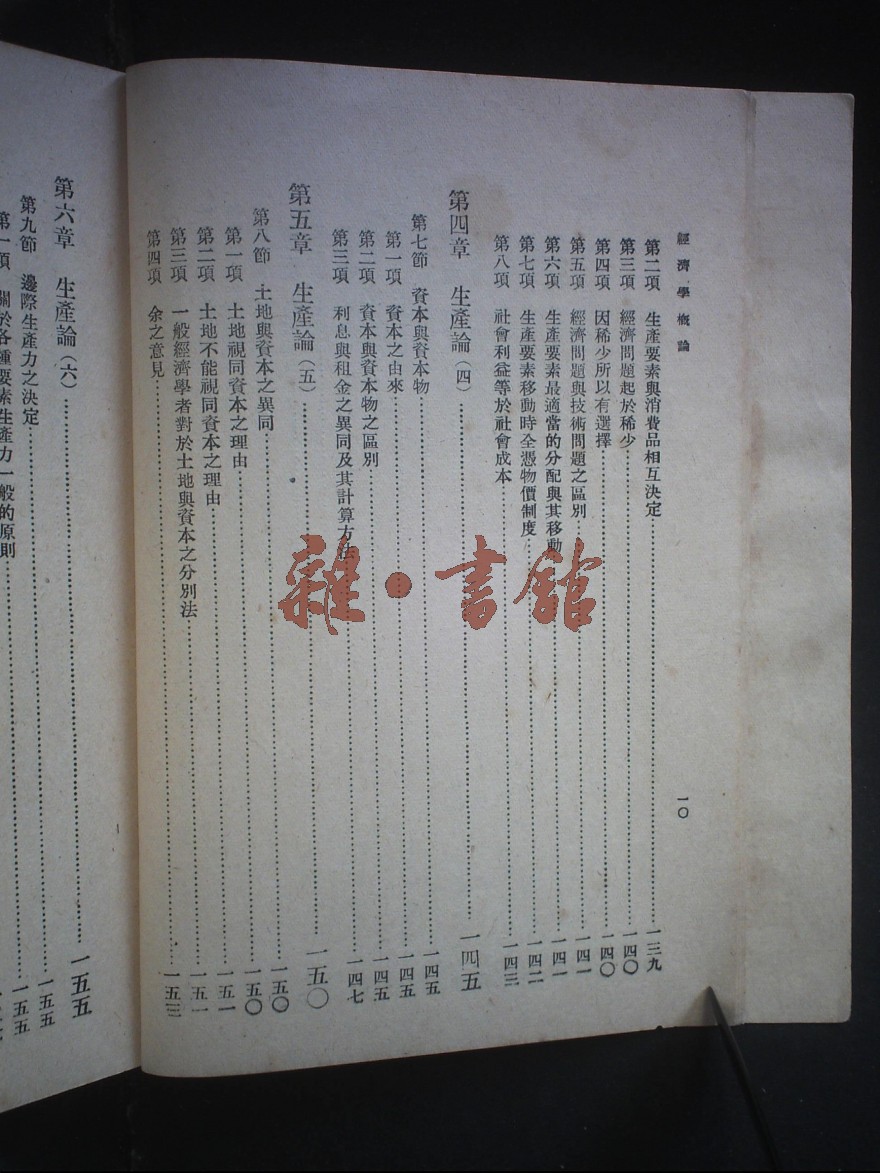 經濟學概論
一〇
第二項　生產要素與消費品相互決定……一三九
第三項　經濟問題起於稀少……一四〇
第四項　因稀少所以有選擇……一四〇
第五項　經濟問題與技術問題之區別……一四一
第六項　生產要素最適當的分配與其移動……一四一
第七項　生產要素移動時全憑物價制度……一四二
第八項　社會利益等於社會成本……一四三
第四章　生產論（四）……一四五
第七節　資本與資本物……一四五
第一項　資本之由來……一四五
第二項　資本與資本物之區別……一四五
第三項　利息與租金之異同及其計算方法……一四七
第五章　生產論（五）……一五〇
第八節　土地與資本之異同……一五〇
第一項　土地視同資本之理由……一五〇
第二項　土地不能視同資本之理由……一五一
第三項　一般經濟學者對於土地與資本之分別法……一五一
第四項　余之意見……一五三
第六章　生產論（六）……一五五
第九節　邊際生產力之決定……一五五
第一項　關於各種要素生產力一般的原則……一五五
雜·書館